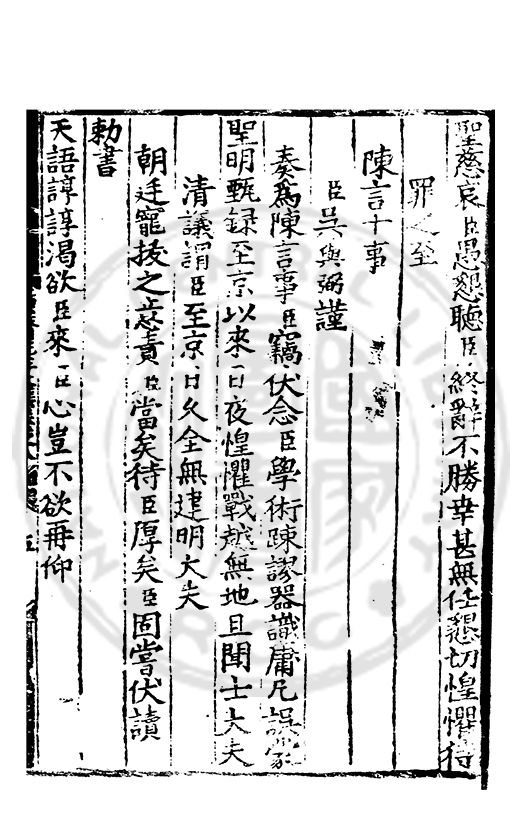 聖慈哀臣愚懇聽臣終辭不勝幸甚無任懇切惶懼待
罪之至
陳言十事
臣吳與弼謹
奏為陳言事臣竊伏念臣學術疎謬器識庸凡誤蒙
聖明甄録至京以來日夜惶懼戰越無地且聞士大夫
清議謂臣至京日久全無建明大失
朝廷寵拔之意責臣當矣待臣厚矣臣固嘗伏讀
勅書
天語諄諄渴欲臣來臣心豈不欲再仰